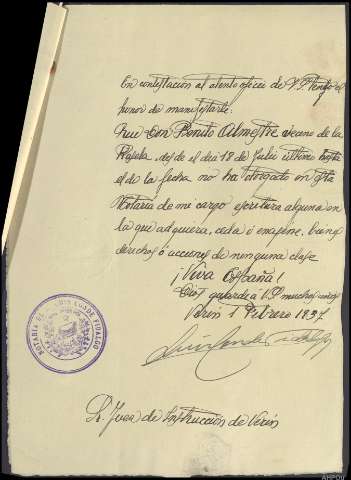 En contestación al atento oficio de V.S. tengo el
honor de manifestarle:
Que Don Benito Almestre vecino de la
desde el dia 18 de Julio último hasta
el de la fecha no ha otorgado en esta
Notaría de mi cargo escritura alguna en
la que adquiera, ceda ó enajene, bienes
derechos ó acciones de ninguna clase
¡Viva España!
Dios guarde a V.S. muchos años
Verin 1 Febrero 1937.
NOTARIA DE LUIS CONDE FIDALGO
Sr. Juez de Instrucción de Verin
AHPOU